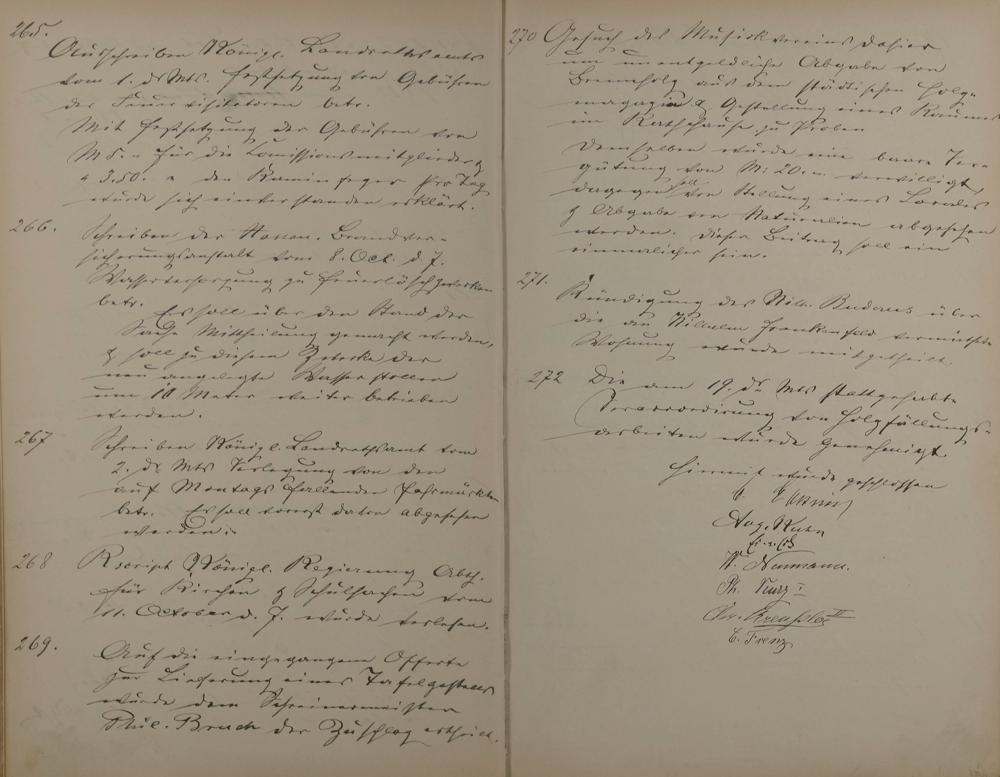 265.
Ausschreiben Königl. Landrathsamts
vom 1. ds Mts. Festsetzung von Gebühren
der Feuervisitatoren betr.
Mit Festsetzung der Gebühren von
M 5.- für die Comissionsmitglieder &
" 3.50. " den Kaminfeger pro Tag
wurde sich einverstanden erklärt.
266.
Schreiben der Nassau. Brandver-
sicherungsanstalt vom 8. Oct. d. J.
Wasserversorgung zu Feuerlöschzwecken
betr. Es soll über den Stand der
Sache Mittheilung gemacht werden,
& soll zu diesem Zwecke der
neu angelegte Wasserstollen
um 10 Meter weiter betrieben
werden.
267
Schreiben Königl. Landrathsamt vom
2. ds Mts Verlegung von den
auf Montags fallenden Jahrmärkten
betr. Es soll vorerst davon abgesehen
werden.
268
Rescript Königl. Regierung Abth.
für Kirchen & Schulsachen vom
11. October d. J. wurde verlesen.
269.
Auf die eingegangene Offerte
zur Lieferung eines Tafelgestells
wurde dem Schreinermeister
Phil. Bruch der Zuschlag ertheilt.
270 Gesuch des Musikvereins dahier
um unentgeldliche Abgabe von
Brennholz aus dem städtischen Holz-
magazin & Gestellung eines Raumes
im Rathhause zu Proben
Demselben wurde eine baare Ver-
gütung von M: 20.- verwilligt,
dagegen soll von Stellung eines Locales
& Abgabe von Naturalien abgesehen
werden. Dieser Beitrag soll ein
einmaliger sein.
271.
Kündigung des Wilh. Buderus über
die an Wilhelm Frankenfeld vermiethete
Wohnung wurde mitgetheilt.
272 Die am 19. ds Mts stattgehabte
Veraccordirung von Holzfällungs-
arbeiten wurde genehmigt.
Hiermit wurde geschlossen
Aug. Kuhn
W. Neumann.
Ph. Kurz I
Chr. Kreuzler II
C. Frenz